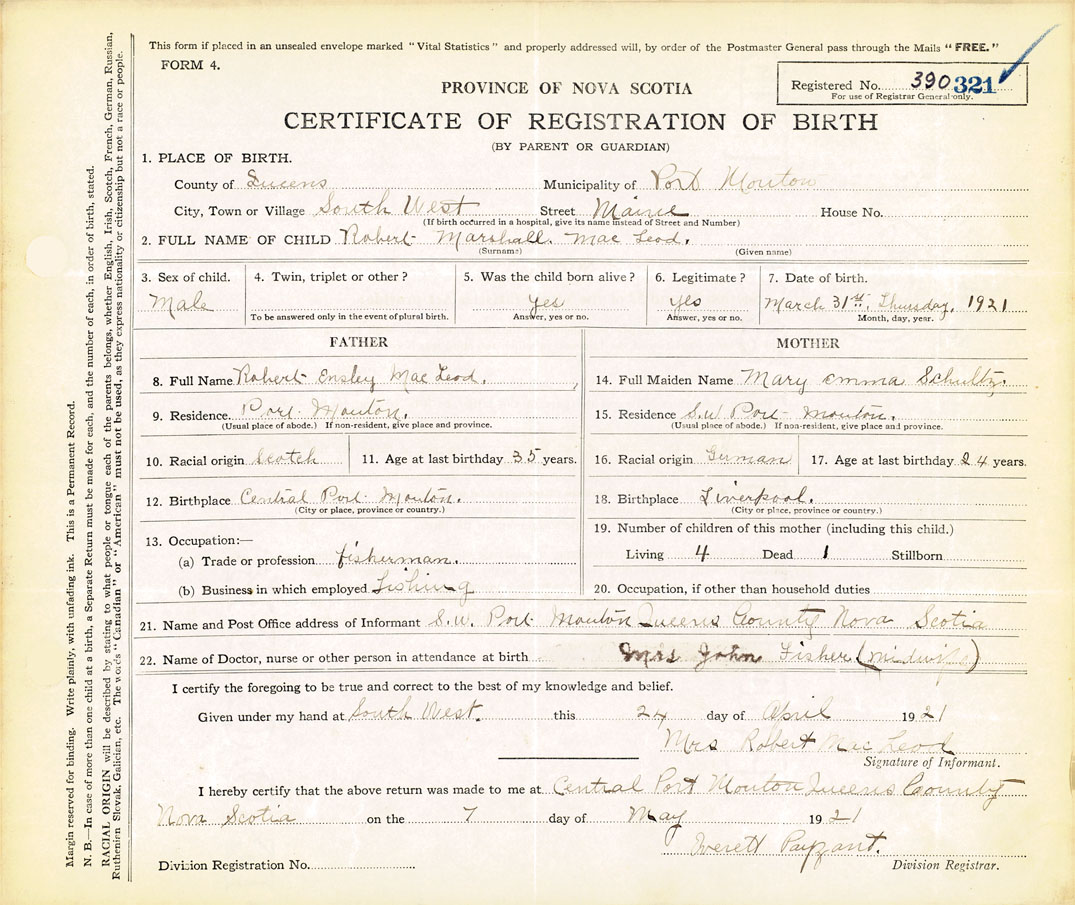 This form if placed in an unsealed envelope marked "Vital Statistics" and properly addressed will, by order of the Postmaster General pass through the Mails "FREE."
FORM 4.
Registered No. 390 321
For use of Registrar General only.
PROVINCE OF NOVA SCOTIA
CERTIFICATE OF REGISTRATION OF BIRTH
(BY PARENT OR GUARDIAN)
1. PLACE OF BIRTH.
County of Queens Municipality of Port Mouton
City, Town or Village South West Street Maine House No.
(If birth occurred in a hospital, give its name instead of Street and Number)
2. FULL NAME OF CHILD Robert Marshall. Mac Leod.
(Surname) (Given name)
3. Sex of child. 4. Twin, triplet or other? 5. Was the child born alive? 6. Legitimate? 7. Date of birth.
Male yes yes March 31st, Thursday, 1921
To be answered only in the event of plural birth. Answer, yes or no. Answer, yes or no. Month, day, year.
FATHER
8. Full Name Robert Ensley Mac Leod.
9. Residence. Port Mouton.
(Usual place of abode.) If non-resident, give place and province.
10. Racial origin Scotch 11. Age at last birthday 35 years.
12. Birthplace Central Port Mouton.
(City or place, province or country.)
13. Occupation:—
(a) Trade or profession fisherman.
(b) Business in which employed Fishing
MOTHER
14. Full Maiden Name Mary Emma Schultz.
15. Residence S.W. Port Mouton.
(Usual place of abode.) If non-resident, give place and province.
16. Racial origin German 17. Age at last birthday 24 years.
18. Birthplace Liverpool.
(City or place, province or country.)
19. Number of children of this mother (including this child.)
Living 4 Dead 1 Stillborn
20. Occupation, if other than household duties
21. Name and Post Office address of Informant S.W. Port Mouton Queens County Nova Scotia
22. Name of Doctor, nurse or other person in attendance at birth Mrs John Fisher (Midwife)
I certify the foregoing to be true and correct to the best of my knowledge and belief.
Given under my hand at South West. this 24 day of April 1921
Mrs Robert Mac Leod
Signature of Informant.
I hereby certify that the above return was made to me at Central Port Mouton Queens County
Nova Scotia on the 7 day of May 1921
Everett Payzant.
Division Registration No. Division Registrar.
Margin reserved for binding. Write plainly, with unfading ink. This is a Permanent Record.
N. B.—In case of more than one child at a birth, a Separate Return must be made for each, and the number of each, in order of birth, stated.
RACIAL ORIGIN will be described by stating to what people or tongue each of the parents belongs, whether English, Irish, Scotch, French, German, Russian,
Ruthenian Slovak, Galician, etc. The words "Canadian" or "American" must not be used, as they express nationality or citizenship but not a race or people.